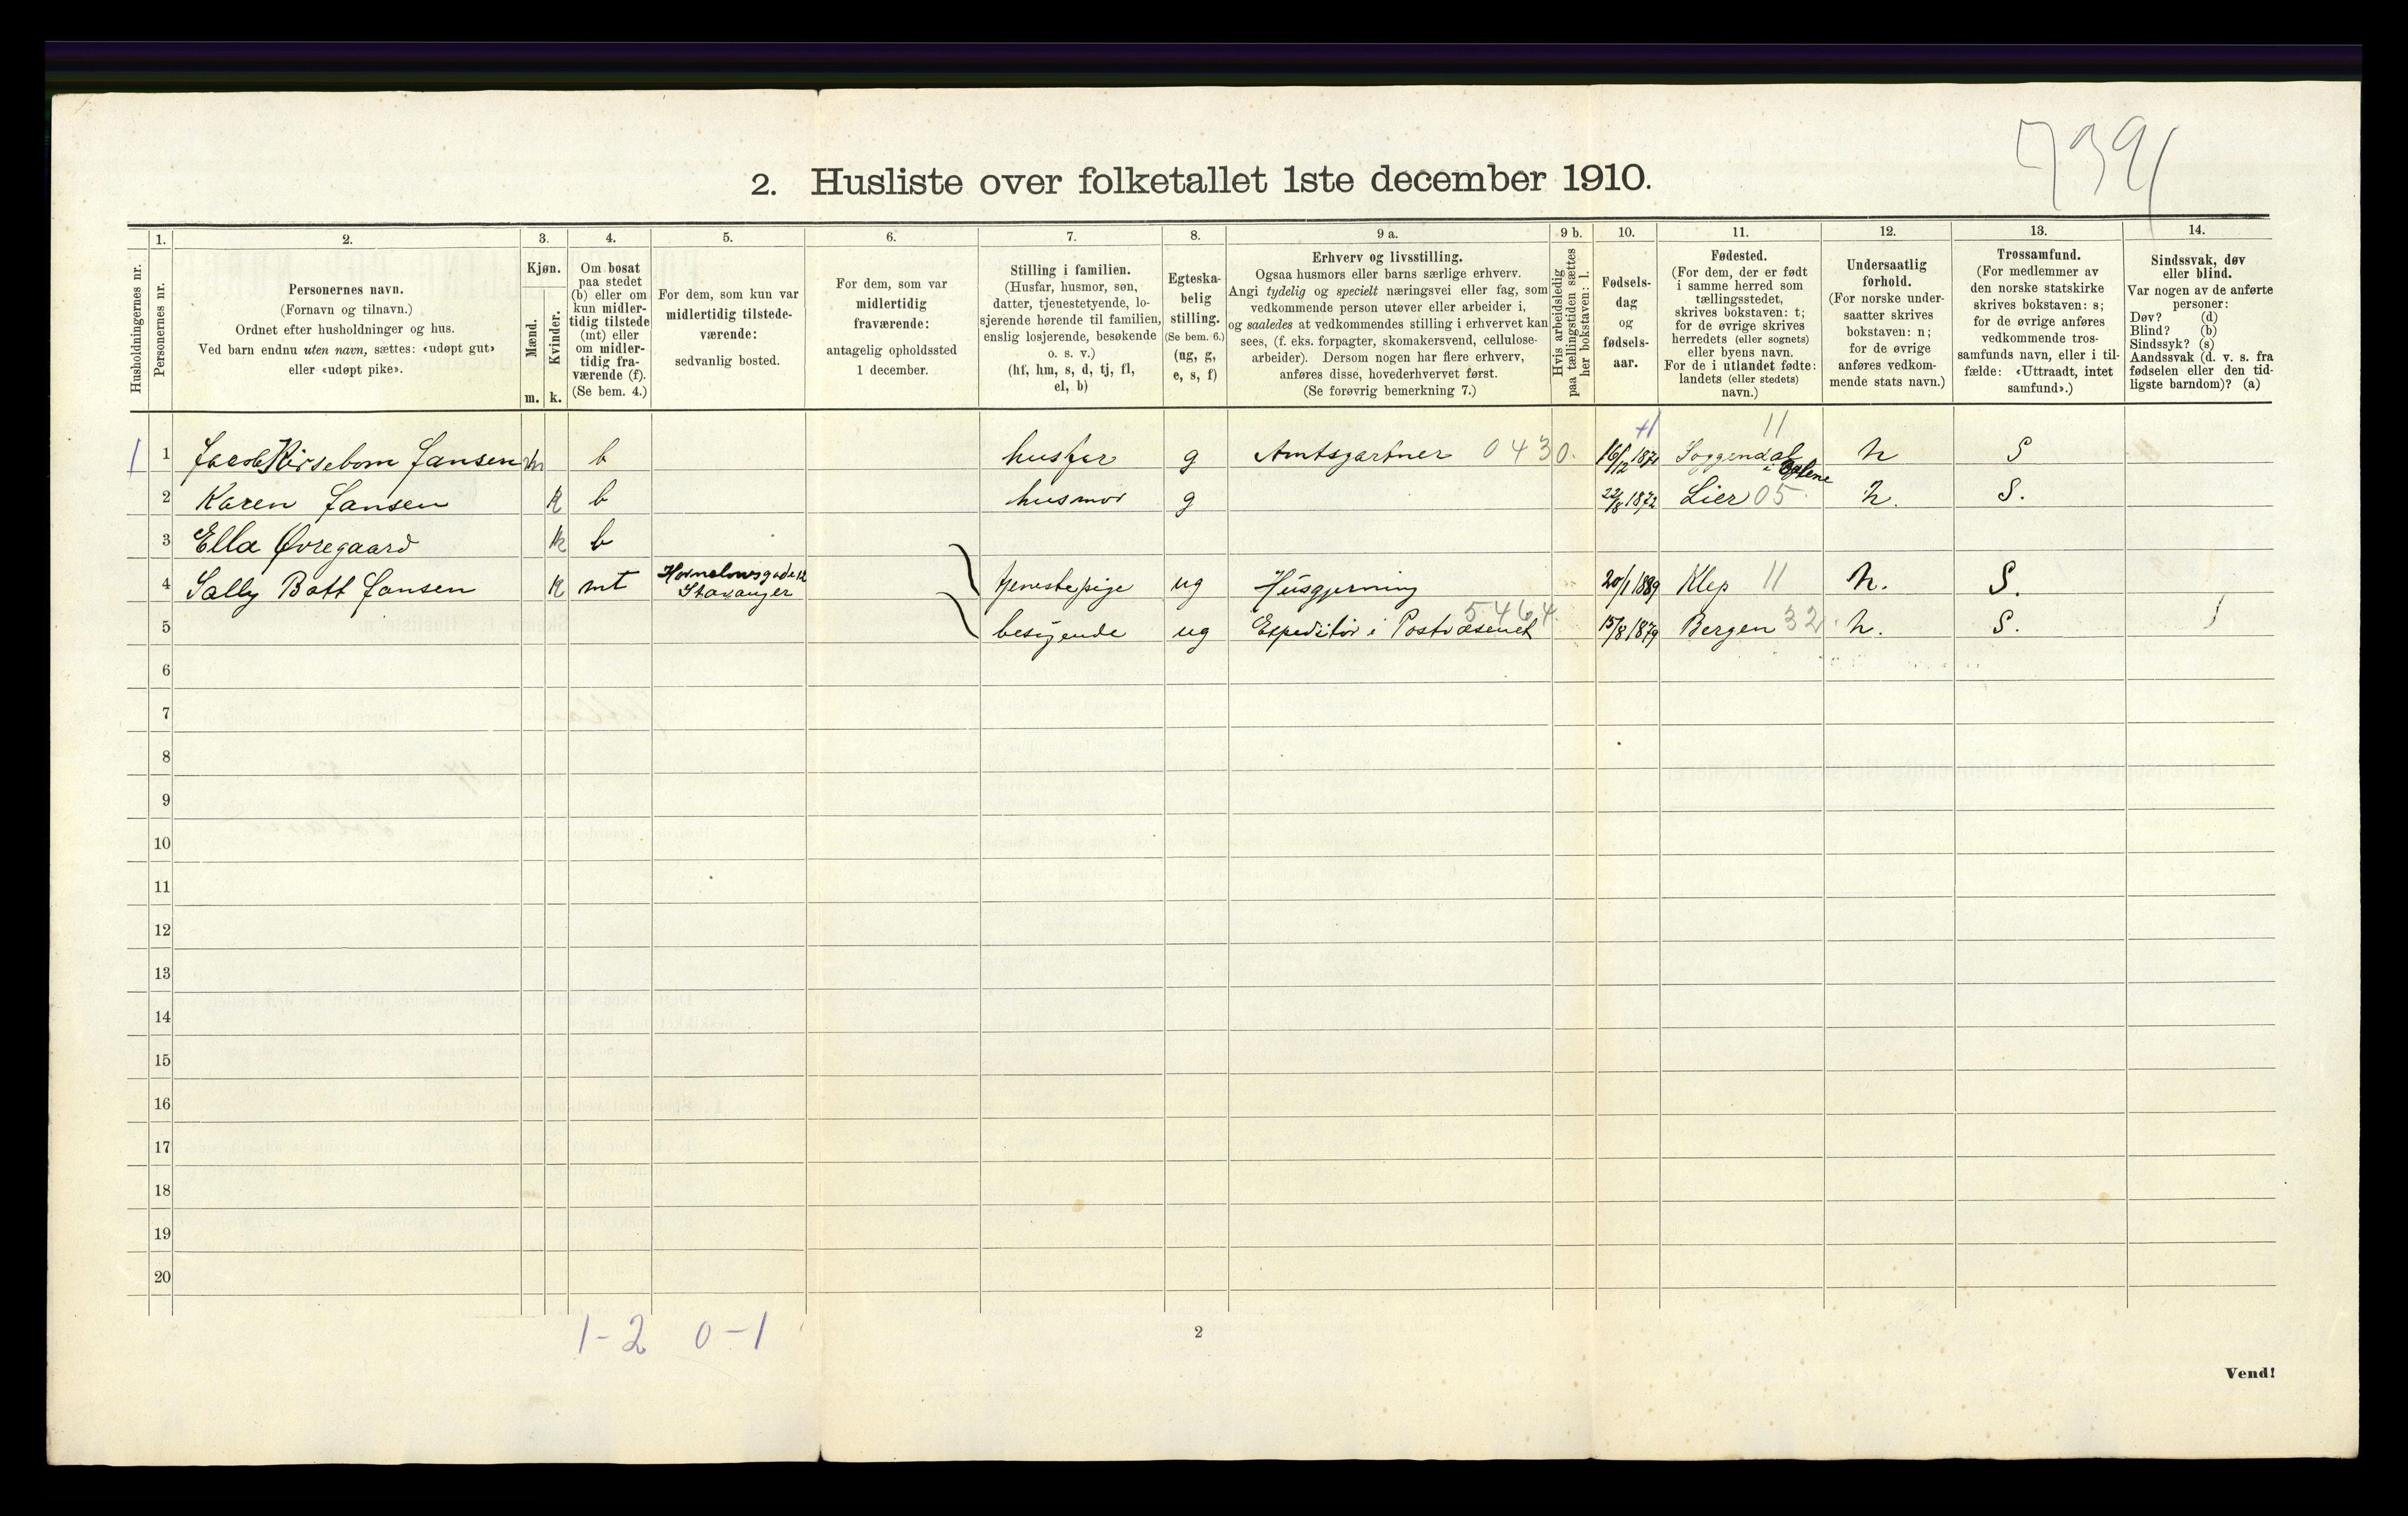 739
2. Husliste over folketallet 1ste december 1910.
Husholdningernes nr.
1.
Personernes nr.
2.
Personernes navn.
(Fornavn og tilnavn.)
Ordnet efter husholdninger og hus.
Ved barn endnu uten navn, sættes: «udøpt gut»
eller «udøpt pike».
3.
Kjøn.
Mænd.
Kvinder.
m. k.
4.
Om bosat
paa stedet
(b) eller om
kun midler-
tidig tilstede
(mt) eller
om midler-
tidig fra-
værende (f).
(Se bem. 4.)
5.
For dem, som kun var
midlertidig tilstede-
værende:
sedvanlig bosted.
6.
For dem, som var
midlertidig
fraværende:
antagelig opholdssted
1 december.
7.
Stilling i familien.
(Husfar, husmor, søn,
datter, tjenestetyende, lo-
sjerende hørende til familien,
enslig losjerende, besøkende
o. s. v.)
(hf, hm, s, d, tj, fl,
el, b)
8.
Egteska-
belig
stilling.
(Se bem. 6.)
(ug, g,
e, s, f)
9 a.
Erhverv og livsstilling.
Ogsaa husmors eller barns særlige erhverv.
Angi tydelig og specielt næringsvei eller fag, som
vedkommende person utøver eller arbeider i,
og saaledes at vedkommendes stilling i erhvervet kan
sees, (f. eks. forpagter, skomakersvend, cellulose-
arbeider). Dersom nogen har flere erhverv,
anføres disse, hovederhvervet først.
(Se forøvrig bemerkning 7.)
9 b.
Hvis arbeidsledig
paa tællingstiden sættes
her bokstaven: l.
10.
Fødsels-
dag
og
fødsels-
aar.
11.
Fødested.
(For dem, der er født
i samme herred som
tællingsstedet,
skrives bokstaven: t;
for de øvrige skrives
herredets (eller sognets)
eller byens navn.
For de i utlandet fødte:
landets (eller stedets)
navn.)
12.
Undersaatlig
forhold.
(For norske under-
saatter skrives
bokstaven: n;
for de øvrige
anføres vedkom-
mende stats navn.)
13.
Trossamfund.
(For medlemmer av
den norske statskirke
skrives bokstaven: s;
for de øvrige anføres
vedkommende tros-
samfunds navn, eller i til-
fælde: «Uttraadt, intet
samfund».)
14.
Sindssvak, døv
eller blind.
Var nogen av de anførte
personer:
Døv? (d)
Blind? (b)
Sindssyk? (s)
Aandssvak (d. v. s. fra
fødselen eller den tid-
ligste barndom)? (a)
1 1 Jacob Kirsebom Jansen m b husfar g Amtsgartner 0430. 16/12 1871 Soggendal 11 n S
i Dalene
2 Karen Jansen k b husmor g 22/8 1872 Lier 05. n. S.
3 Ella Øvregaard k b
4 Sally Bött Jansen k mt Stavanger tjenestepige ug Husgjerning 20/1 1889 Klep 11 n. S.
5 besøgende ug Expeditör i Postvæsenet 5464. 15/8 1879 Bergen 32. n. S.
6
7
8
9
10
11
12
13
14
15
16
17
18
19
20
1-2 0-1
2
Vend!